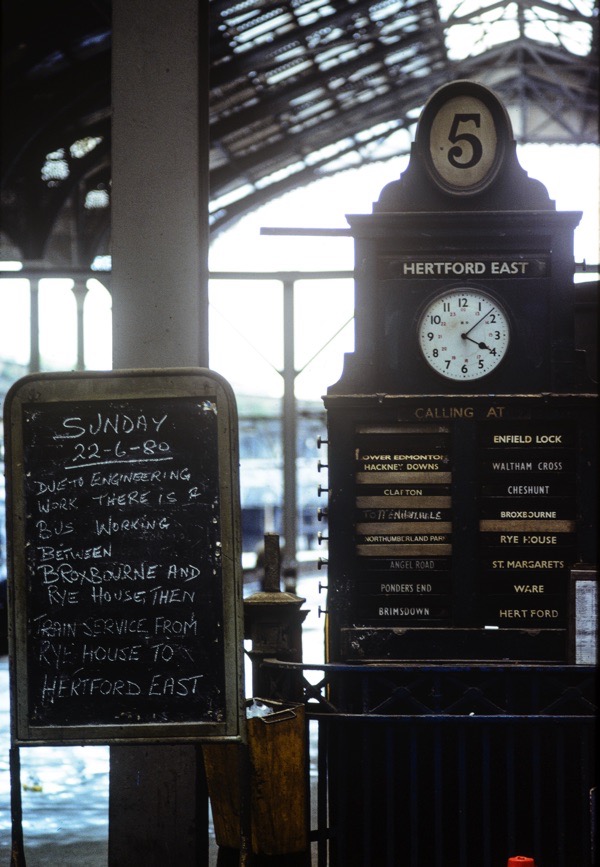 SUNDAY
22-6-80
DUE TO ENGINEERING
WORK THERE IS A
BUS WORKING
BETWEEN
BROXBOURNE AND
RYE HOUSE, THEN
TRAIN SERVICE FROM
RYE HOUSE TO
HERTFORD EAST
5
HERTFORD EAST
12
1
2
3
4
5
6
7
8
9
10
11
CALLING AT
LOWER EDMONTON
HACKNEY DOWNS
CLAPTON
NORTHUMBERLAND PARK
ANGEL ROAD
PONDER'S END
BRIMSDOWN
ENFIELD LOCK
WALTHAM CROSS
CHESHUNT
BROXBOURNE
RYE HOUSE
ST. MARGARETS
WARE
HERTFORD